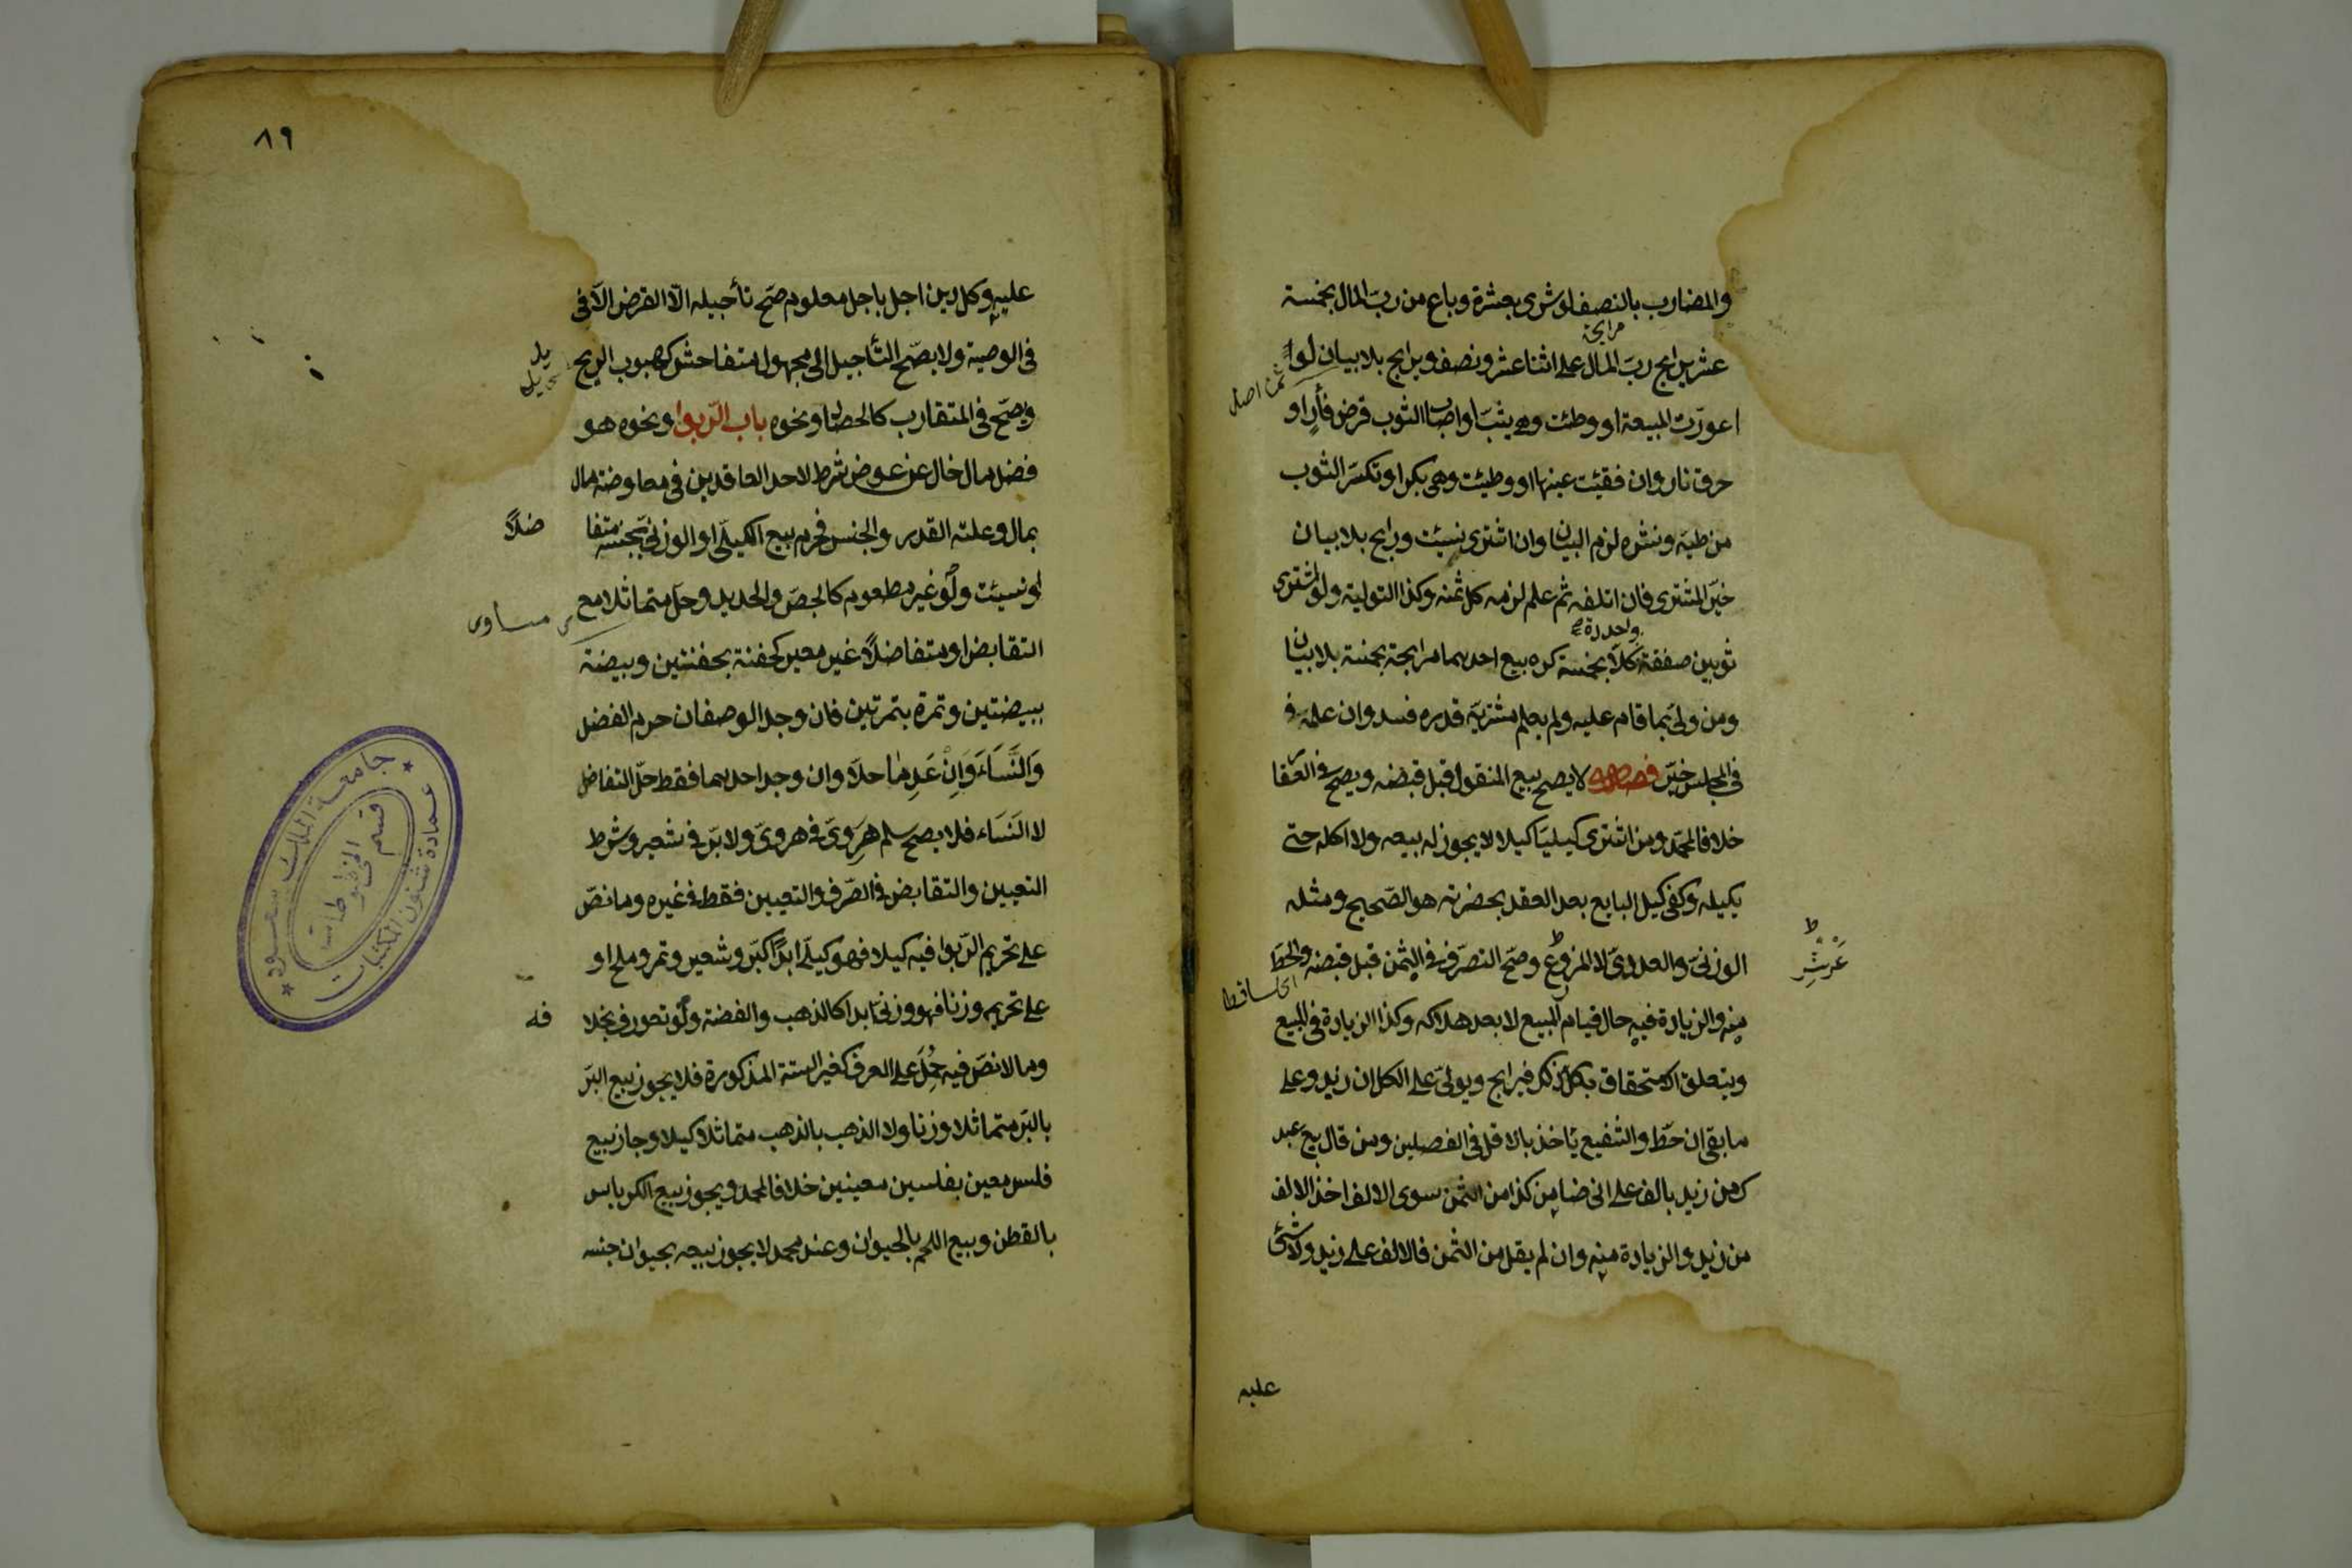 والمضارب بالنصف لو شرى بعشرة وباع من ربّ المال بخمسة
مرابحة
عشر يرابح ربّ المال على اثنا عشر ونصف ويرابح بلا بيان لو
ثمن اصل
اعورّت المبيعة او وطئت وهي ثيّب او اصاب الثوب قرض فأر او
حرق نار وان فقئت عينها او وطئت وهى بكر او تكسّر الثوب
من طيّه ونشره لزم البيان وان اشترى نسيئة ورابح بلا بيان
خيّر المشترى فان اتلفه ثم علم لزمه كل ثمنه وكذا التولية ولو اشترى
واحدة
ثوبين صفقة كلّا بخمسة كره بيع احدهما مرابحة بخمسة بلا بيان
ومن ولّى بما قام عليه ولم يعلم مشتريه قدره فسد وان علمه ف
فى المجلس خيّر فصل لا يصح بيع المنقول قبل قبضه ويصح في العقار
خلافا لمحمّد ومن اشترى كيليّا كيلا لا يجوز له بيعه ولا اكله حتى
يكيله وكفى كيل البايع بعد العقد بحضرته هو الصّحيح ومثله
الوزنىّ والعددىّ لا المزروع وصحّ التصرّف في الثمن قبل قبضه والحطّ
منه والزيادة فيه حال قيام المبيع لا بعد هلاكه وكذا الزيادة فى المبيع
ويتعلق الاستحقاق بكل ذلك فيرابح ويولىّ على الكل ان زيد وعلى
ما بقى ان حطّ والشفيع يأخذ بالاقل فى الفصلين ومن قال بع عبد
ك من زيد بالف على انى ضامن كذا من الثمن سوى الالف اخذ الالف
من زيد والزيادة منه وان لم يقل من الثمن فالالف على زيد ولا شئ
عليه
٨٩
عليه وكل دين اجل باجل معلوم صحّ تأجيله الّا القرض الّا فى
فى الوصية ولا يصحّ التأجيل الى مجهول متفاحش كهبوب الريح
وصحّ فى المتقارب كالحصاد ونحوه باب الرّبوا ونحوه هو
فضل مال خال عن عوض شرط لاحد العاقدين فى معاوضة مال
بمال وعلته القدر والجنس فحرم بيع الكيلّى او الوزنىّ بجنسه متفا
ضلاً
او نسيئة ولو غير مطعوم كالجصّ والحديد وحلّ متماثلا مع
مساوى
التقابض او متفاضلاً غير معير كحفنة بحفنتين وبيضة
ببيضتين وتمرة بتمرتين فان وجد الوصفان حرم الفضل
وَالنَّسَاءَ وَاِنْ عَدِما حلّا وان وجد احدهما فقط حلّ التفاضل
لا النَسَاء فلا يصح سلم هِرَوىّ في هروىّ ولا برّ في شعير وشرط
التعيين والتقابض في الصّرف والتعيين فقط في غيره وما نصّ
على تحريم الرّبوا فيه كيلا فهو كيلّى ابدًا كبرّ وشعير وتمر وملح او
على تحريمه وزنا فهو وزنىّ ابدا كالذهب والفضة ولو تعورف بخلا
فه
وما لا نصّ فيه حُمِلَ على العرف كغير الستة المذكورة فلا يجوز بيع البرّ
بالبرّ متماثلا وزنا ولا الذهب بالذهب متماثلا كيلا وجاز بيع
فلس معين بفلسين معينين خلافا لمحمد ويجوز بيع الكرباس
بالقطن وبيع اللحم بالحيوان وعند محمد لا يجوز بيعه بحيوان جنسه
جامعة الملك سعود
عمادة شئون المكتبات
قسم المخطوطات